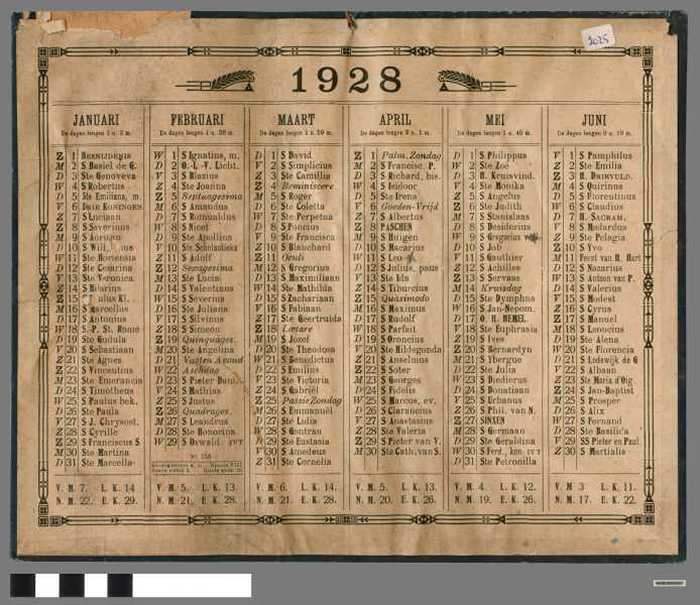 2025
1928
JANUARI
De dagen lengen 1 u. 3 m.
Z 1 BESNIJDENIS
M 2 S Basiel de G.
D 3 Ste Genoveva
W 4 S Robertus
D 5 Ste Emiliana, m.
V 6 DRIE KONINGEN
Z 7 S Luciaan
Z 8 S Severinus
M 9 S
D 10 S
W 11 Ste Hortensia
D 12 Ste Cesarina
V 13 Ste Veronica
Z 14 S Hilarius
Z 15 S Kl.
M 16 S Marcellus
D 17 S Antonius
W 18 S.-P. St. Rome
D 19 Ste Gudula
V 20 S Sebastiaan
Z 21 Ste Agnes
Z 22 S Vincentius
M 23 Ste Emerantia
D 24 S Timotheus
W 25 S Paulus bek.
D 26 Ste Paula
V 27 S J. Chrysost.
Z 28 S Cyrille
Z 29 S Franciscus S.
M 30 Ste Martina
D 31 Ste Marcella
V. M. 7. L. K. 14
N. M. 22. E. K. 29.
FEBRUARI
W 1 S Ignatius, m.
D 2 O.-L.-V. Licht.
V 3 S Blasius
Z 4 Ste Joanna
Z 5 Septuagesima
M 6 S Amandus
D 7 S Romualdus
W 8 S Nicet
D 9 Ste Apollina
V 10 Ste Scholastica
Z 11 S Adolf
Z 12 Sexagesima
M 13 Ste Lucia
D 14 S Valentinus
W 15 S Severius
D 16 Ste Juliana
V 17 S Silvinus
Z 18 S Simeon
Z 19 Quinquages.
M 20 Ste Angelina
D 21 Vasten-Avond
W 22 Aschdag
D 23 S Pieter Dam.
V 24 S Mathias
Z 25 S Justus
Z 26 Quadrages.
M 27 S Leandrus
D 28 Ste Honorina
W 29 S Oswald IVT
V. M. 5. L. K. 13.
N. M. 21. E. K. 28.
MAART
D 1 S David
V 2 S Simplicius
Z 3 Ste Camillia
Z 4 Reminiscere
M 5 S Roger
D 6 Ste Coletta
W 7 Ste Perpetua
D 8 S Pontius
V 9 Ste Francisca
Z 10 S Blanchard
Z 11 Oculi
M 12 S Gregorius
D 13 S Maximiliaan
W 14 Ste Mathilda
D 15 S Zachariaan
V 16 S Fabiaan
Z 17 Ste Geertruida
Z 18 Lætare
M 19 S Jozef
D 20 Ste Theodosa
W 21 S Benedictus
D 22 S Emilius
V 23 Ste Victoria
Z 24 S Gabriël
Z 25 Passie Zondag
M 26 S Emmanuël
D 27 Ste Lidia
W 28 S Gontran
D 29 Ste Eustasia
V 30 S Amedeus
Z 31 Ste Cornelia
V. M. 6. L. K. 14.
N. M. 21. E. K. 28.
APRIL
Z 1 Palm. Zondag
M 2 S Francisc. P.
D 3 S Richard, bis.
W 4 S Isidoor
D 5 Ste Irena
V 6 Goeden-Vrijd
Z 7 S Albertus
Z 8 PASCHEN
M 9 S Huigen
D 10 S Macarius
W 11 S Leo
D 12 S Julius, paus
V 13 Ste Ida
Z 14 S Tiburcius
Z 15 Quasimodo
M 16 S Maximus
D 17 S Rudolf
W 18 S Parfait
D 19 S Oroncius
V 20 Ste Hildegonda
Z 21 S Anselmus
Z 22 S Soter
M 23 S Georges
D 24 S Fidelis
W 25 S Marcus, ev.
D 26 S Clarancius
V 27 S Anastasius
Z 28 Ste Valeria
Z 29 S Pieter van V.
M 30 Ste Cath. van S.
V. M. 5. L. K. 13.
N. M. 20. E. K. 26.
MEI
D 1 S Philippus
W 2 Ste Zoé
D 3 H. Kruisvind.
V 4 Ste Monika
Z 5 S Angelus
Z 6 Ste Judith
M 7 S Stanislaas
D 8 S Desiderius
W 9 S Gregorius
D 10 S Job
V 11 S Gauthier
Z 12 S Achilles
Z 13 S Servaas
M 14 Kruisdag
D 15 Ste Dymphna
W 16 S Jan-Nepom.
D 17 O. H. HEMEL.
V 18 Ste Euphrasia
Z 19 S Ives
Z 20 S Bernardyn
M 21 S Ybergue
D 22 Ste Julia
W 23 S Diedierus
D 24 S Donatiaan
V 25 S Urbanus
Z 26 S Phil. van N.
Z 27 SINXEN
M 28 S Germaan
D 29 Ste Geraldina
W 30 S Ferd., kon. IVT
D 31 Ste Petronilla
V. M. 4. L. K. 12.
N. M. 19. E. K. 26.
JUNI
V 1 S Pamphilus
Z 2 Ste Emilia
Z 3 H. DRIEVULD.
M 4 S Quirinus
D 5 S Florentinus
W 6 S Claudius
D 7 H. SACRAM.
V 8 S Medardus
Z 9 Ste Pelagia
Z 10 S Yvo
M 11 Feest van H. Hart
D 12 S Nazarius
W 13 S Anton van P.
D 14 S Valerius
V 15 S Modest
Z 16 S Cyrus
Z 17 S Manuel
M 18 S Leoncius
D 19 Ste Alena
W 20 Ste Florencia
D 21 S Lodewijk de G
V 22 S Albaan
Z 23 Ste Maria d'Oig
Z 24 S Jan-Baptist
M 25 S Prosper
D 26 S Alix
W 27 S Fernand
D 28 Ste Basilica
V 29 SS Pieter en Paul.
Z 30 S Martialis
V. M 3 L. K. 11.
N. M. 17. E. K. 22.